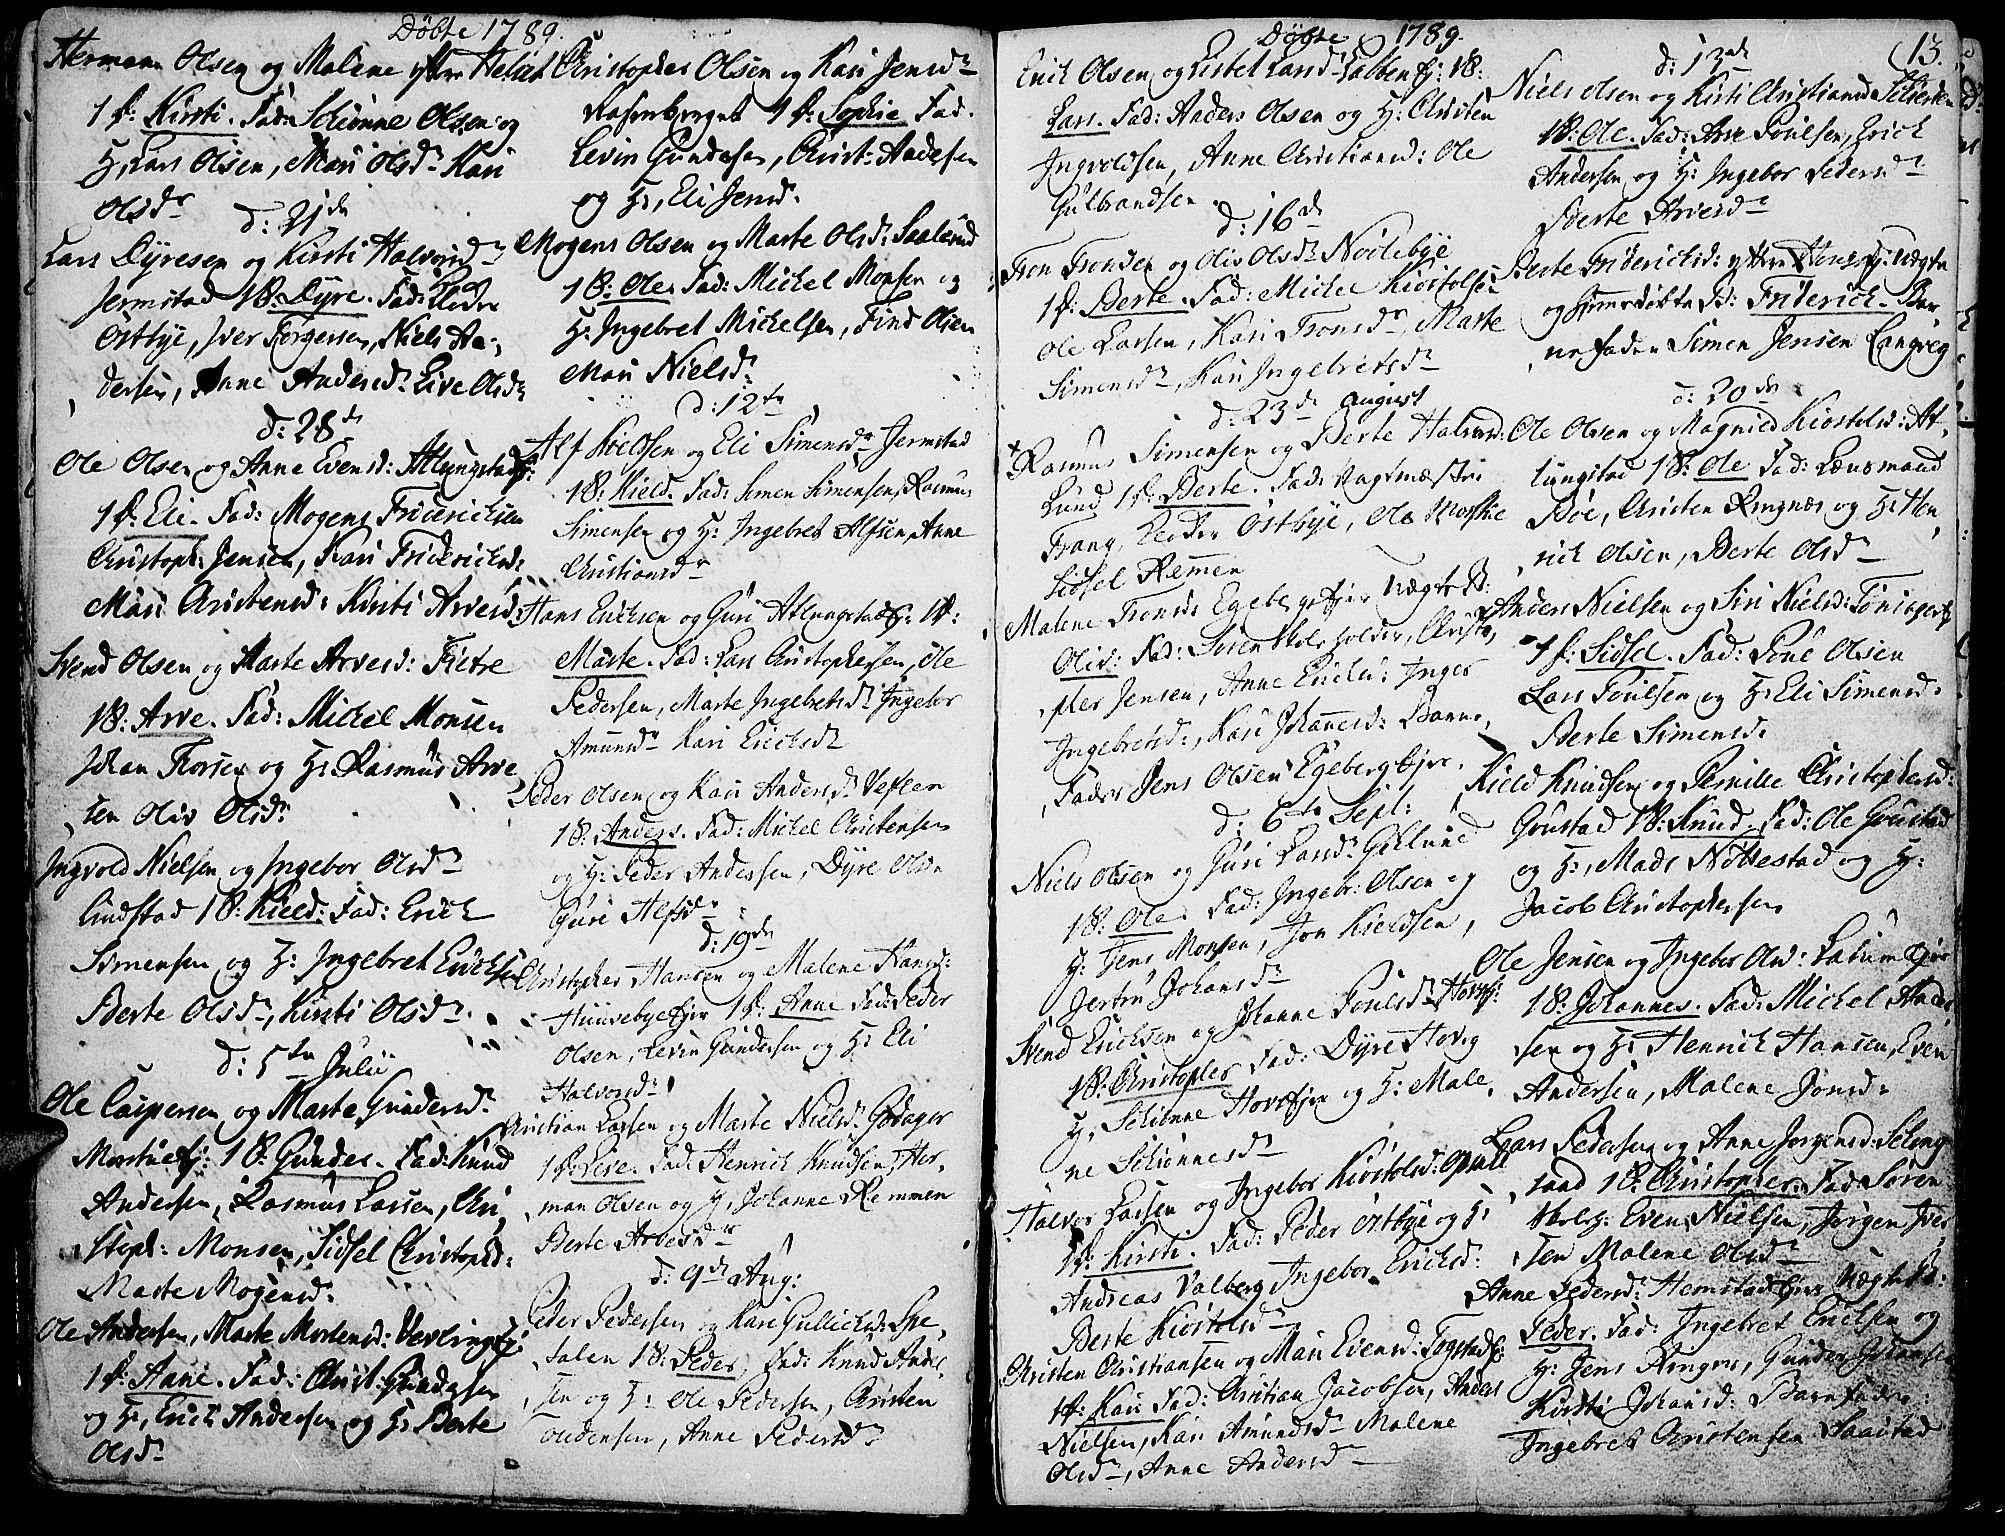 Döbte 1789.
Hermann Olsen og Malene
1 P: Kirsti. Fad: Schiönne Olsen og
H, Lars Olsen, Mari Olsdr Kari
Olsdr
d: 21de
Lars Dyresen og Kirsti Halvorsdr
Jermstad 1 B: Dyre. Fad: Peder
Ostbye, Iver Torgersen, Niels An-
dersen, Anne Andersdr Live Olsdr
d: 28de
Ole Olsen og Anne Evensd: Atlungstad
1 P: Eli. Fad: Mogens Friderichsen
Christoph: Jensen, Kari Friderichsd:
Mari Christensd: Kirsti Arvesd:
Svend Olsen og Marte Arvesd: Fietre
1 B: Arve. Fad: Michel Monsen
Johan Torsen og H: Rasmus Arve-
sen Oliv Olsdr
Ingvold Nielsen og Ingebor Olsdr
Lindstad 1 B: Kield. Fad: Erich
Simensen og H: Ingebret Erichsen
Berte Olsdr, Kirsti Olsdr
d: 5te Julii
Ole Caspersen og Marte Gundersdr
1 B: Gunder. Fad: Knud
Andersen, Rasmus Larsen, Chri-
stoph: Monsen, Sidsel Christophd:
Marte Mogensd:
Ole Andersen, Marte Mortensd:
1 P: Anne. Fad: Christ: Gundersen
og H, Erich Andersen og H: Berte
Olsdr
Christopher Olsen og Kari Jensdr
1 P: Sophie Fad.
Levin Gundersen, Christ: Andersen
og H, Eli Jensd.
Mogens Olsen og Marte Olsd: Saalund
1 B: Ole. Fad: Michel Monsen og
H: Ingebret Michelsen, Find Olsen
Mari Nielsd:
d: 12te
Alf Kieldsen og Eli Simensdr Jermstad
1 B: Kield. Fad: Simen Simensen, Rasmus
Simensen og H: Ingebret Alfsen, Anne
Christiansdr
Hans Erichsen og Guri Atlungstad 1 P:
Marte. Fad: Lars Christophersen, Ole
Pedersen, Marte Ingebretsdr Ingebor
Amundsdr Kari Erichsdr
Peder Olsen og Kari Andersdr Vestlen
1 B: Anders. Fad: Michel Christensen
og H: Peder Andersen, Dyre Olsen
Guri Alfsdr
d: 19de
Christopher Hansen og Malene Hansd:
1 P: Anne Fad: Peder
Olsen, Levin Gundersen og H: Eli
Halvorsdr
Christian Larsen og Marte Nielsd: Godager
1 P: Live. Fad: Henrich Knudsen, Her-
man Olsen og H, Johanne Remmen
Berte Arvesdr
d: 9de Aug:
Peder Pedersen og Kari Gullichsd: Spe-
talen 1 B: Peder. Fad: Knud Ander-
sen og H: Ole Pedersen, Christen
Andersen, Anne Pedersdr
Döbte 1789.
13.
Erich Olsen og Lisbet Larsd: 1 B:
Lars. Fad: Anders Olsen og H: Christen
Ingvoldsen, Anne Christiansd: Ole
Gulbrandsen
d: 16de
Tron Tronsen og Oliv Olsdr Nöclebye
1 P: Berte. Fad: Michel Kiöstolsen
Ole Larsen, Kari Tronsdr, Marte
Simensdr, Kari Ingebretsdr
d: 23de August
Rasmus Simensen og Berte Halvorsd:
Lund 1 P: Berte. Fad: Vagtmester
Trang, Peder Ostbye, Ole Moshue
Sidsel Remmen
Malene Tronsdr Egeberg
Oliv: Fad: Sören, Christo-
pher Jensen, Anne Erichsd: Inger
Ingebretsd:, Kari Johannesd: Barne-
Fader Jens Olsen Egeberg
d: 6te Sept:
Niels Olsen og Guri Larsdr
1 B: Ole. Fad: Ingebr: Olsen og
H: Jens Monsen, Jon Kieldsen,
Jertru Johansdr
Svend Erichsen og Johanne Poulsdr
1 B: Christopher Fad: Dyre Hovig
H, Schiönne og H: Male-
ne Schiönnesdr
Halvor Larsen og Ingebor Kiöstolsd:
1 P: Kirsti. Fad: Peder Ostbye og H:
Andreas Valberg, Ingebor Erichsd:
Berte Kiöstolsdr
Christen Christiansen og Mari Evensd:
1 P: Kari Fad: Christian Jacobsen, Anders
Nielsen, Kari Amundsdr Malene
Olsdr, Anne Andersdr
d: 13de
Niels Olsen og Kirsti Christiansd
1 B: Ole. Fad: Arve Poulsen, Erich
Andersen og H: Ingebor Pedersdr
Berte Arvesdr
Berte Friderichsd:
og hiemedöbte B: Friderich. Bar-
nefader Simen Jensen Langvig
d: 20de
Ole Olsen og Magnild Kiöstolsd: At-
lungstad 1 B: Ole Fad: Lensmand
Böe, Christen Ringnes og H: Hen-
rich Olsen, Berte Olsdr
Anders Nielsen og Siri Nielsd:
1 P: Sidsel. Fad: Poul Olsen
Lars Poulsen og H: Eli Simensd:
Berte Simensd:
Kield Knudsen og Pernille Christophersd:
Groustad 1 B: Knud. Fad: Ole Groustad
og H:, Mads Nöttestad og H:
Jacob Christophersen
Ole Jensen og Ingebor Olsd:
1 B: Johannes. Fad: Michel Ander-
sen og H: Henrich Hansen, Even
Andersen, Malene Jonsd:
Lars Pedersen og Anne Jorgensd:
1 B: Christopher. Fad: Sören
Even Nielsen, Jörgen Iver-
sen Malene Olsdr
Anne Pedersd: Hemstad
Peder. Fad: Ingebret Erichsen og
H: Jens Ringnes, Gunder Johansen
Kirsti Johansd: Barnefader
Ingebret Christensen Saastad